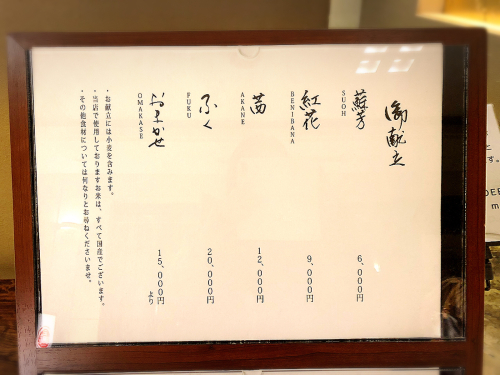 御献立
蘇芳
SUOH
6,000円
紅花
BENIBANA
9,000円
茜
AKANE
12,000円
ふく
FUKU
20,000円
おまかせ
OMAKASE
15,000円より
・お献立には小麦を含みます。
・当店で使用しておりますお米は、すべて国産でございます。
・その他食材については何なりとお尋ねくださいませ。